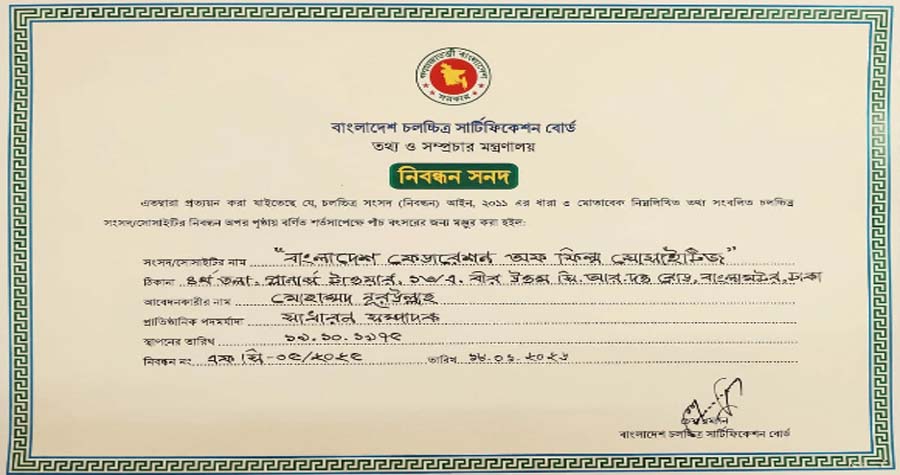 গণপ্রজাতন্ত্রী বাংলাদেশ
সরকার
বাংলাদেশ চলচ্চিত্র সার্টিফিকেশন বোর্ড
তথ্য ও সম্প্রচার মন্ত্রণালয়
নিবন্ধন সনদ
এতদ্বারা প্রত্যয়ন করা যাইতেছে যে, চলচ্চিত্র সংসদ (নিবন্ধন) আইন, ২০১১ এর ধারা ৩ মোতাবেক নিম্নলিখিত তথ্য সংবলিত চলচ্চিত্র
সংসদ/সোসাইটির নিবন্ধন অপর পৃষ্ঠায় বর্ণিত শর্তসাপেক্ষে পাঁচ বৎসরের জন্য মঞ্জুর করা হইল:
সংসদ/সোসাইটির নাম "বাংলাদেশ ফেডারেশন অফ ফিল্ম সোসাইটিজ"
ঠিকানা ৪র্থ তলা, প্লানার্স টাওয়ার, ১৩/এ, বীর উত্তম সি.আর.দত্ত রোড, বাংলামটর, ঢাকা
আবেদনকারীর নাম মোহাম্মদ নূরউল্লাহ
প্রাতিষ্ঠানিক পদমর্যাদা সাধারন সম্পাদক
স্থাপনের তারিখ
নিবন্ধন নং. এফ সি-০৫/২০২৫ তারিখ
বাংলাদেশ চলচ্চিত্র সার্টিফিকেশন বোর্ড